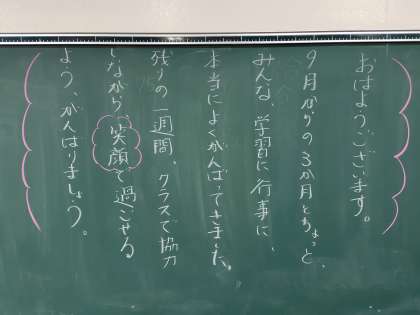 おはようございます。
9月からの3か月とちょっと、
みんな、学習に行事に、
本当によくがんばってきました。
残りの一週間、クラスで協力
しながら、笑顔で過ごせる
よう、がんばりましょう。